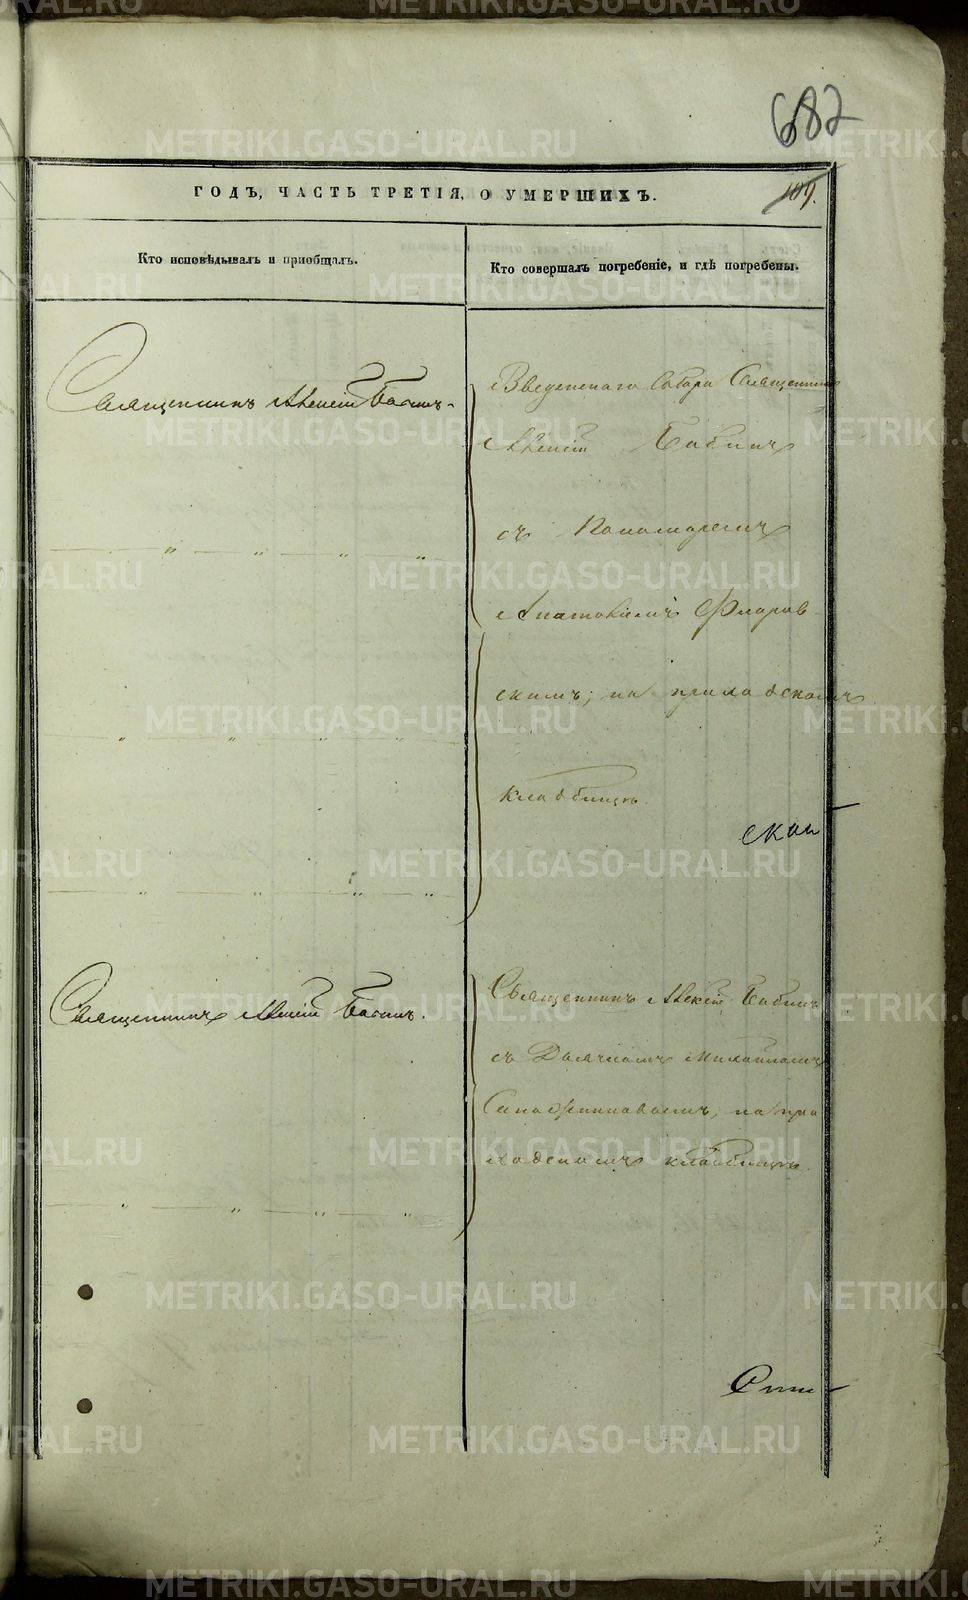 682
109.
ГОДЪ, ЧАСТЬ ТРЕТІЯ, О УМЕРШИХЪ.
Кто исповѣдывалъ и приобщалъ.
Кто совершалъ погребеніе, и гдѣ погребены.
Священникъ Алексій Бабинъ.
Введенскаго Собора Священникъ
Алексій Бабинъ
съ Пономаремъ
Анатоліемъ Флоров
скимъ; на приходскомъ
кладбищѣ.
Священникъ Алексій Бабинъ.
Священникъ Алексій Бабинъ
съ Дьячкомъ Михаиломъ
на при
ходскомъ кладбищѣ.
METRIKI.GASO-URAL.RU